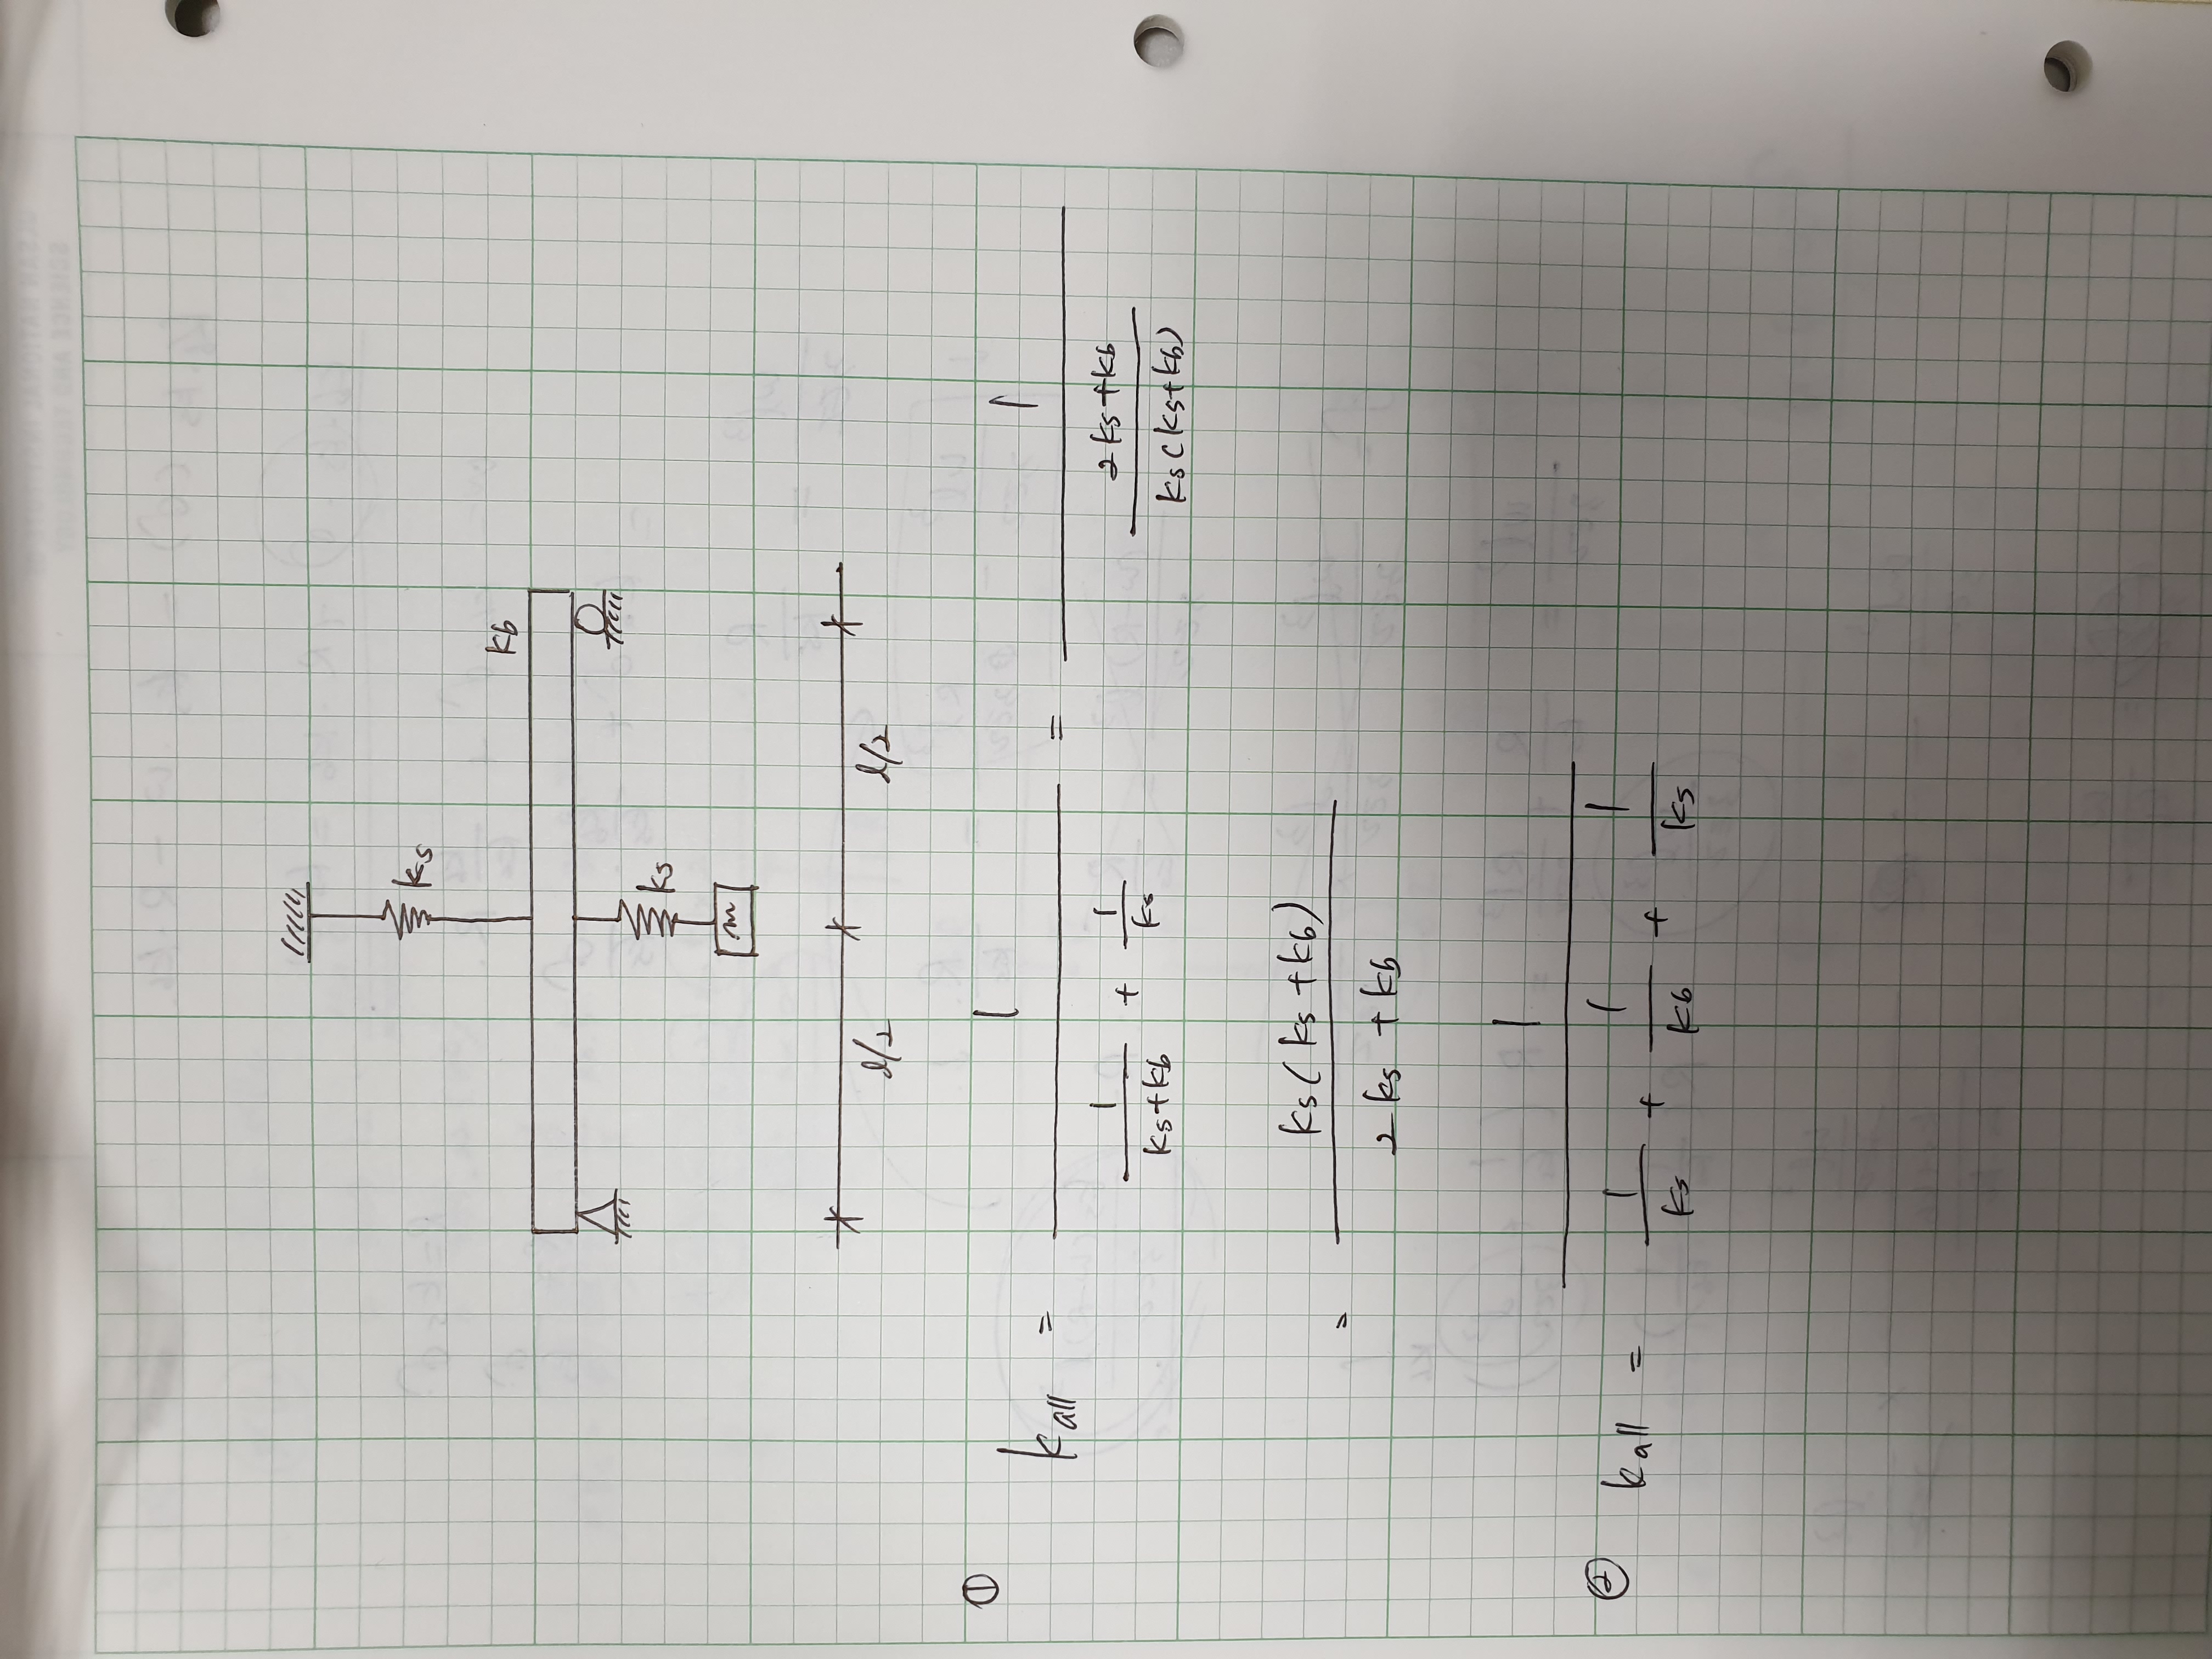 ks
kb
ks
m
l/2 l/2
① kall = 1 / (1/(ks+kb) + 1/ks) = 1 / ((2ks+kb) / (ks(ks+kb)))
= ks(ks+kb) / (2ks+kb)
② kall = 1 / (1/ks + 1/kb + 1/ks)